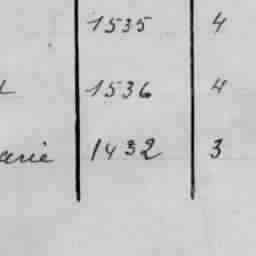 1535 4
1536 4
arie 1432 3